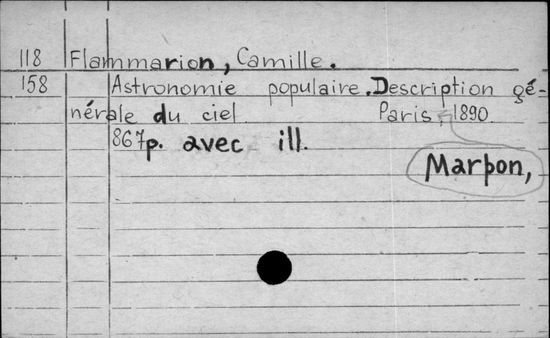 118 Flammarion, Camille.
158 Astronomie populaire. Description gé-
nérale du ciel Paris, 1890.
867p. avec ill.
Marpon,